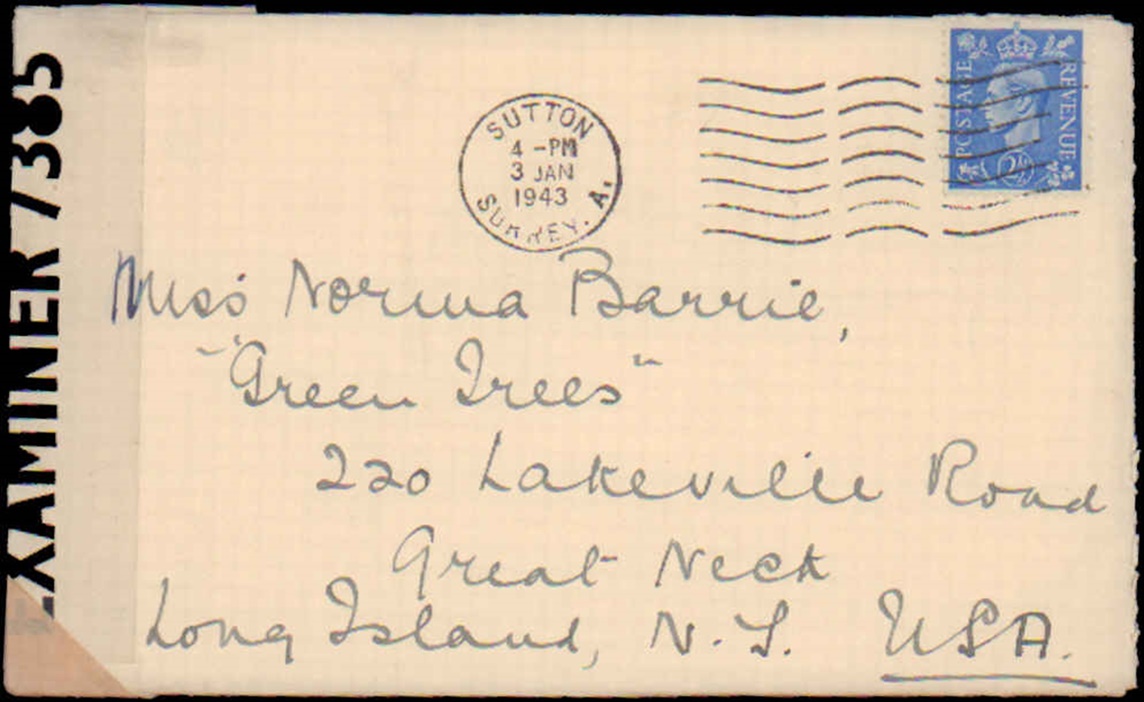 EXAMINER 7385
SUTTON
4 - PM
3 JAN
1943
SURREY. A.
POSTAGE
REVENUE
2½
Miss Norma Barrie,
"Green Trees"
220 Lakeville Road
Great Neck
Long Island, N.Y. USA.